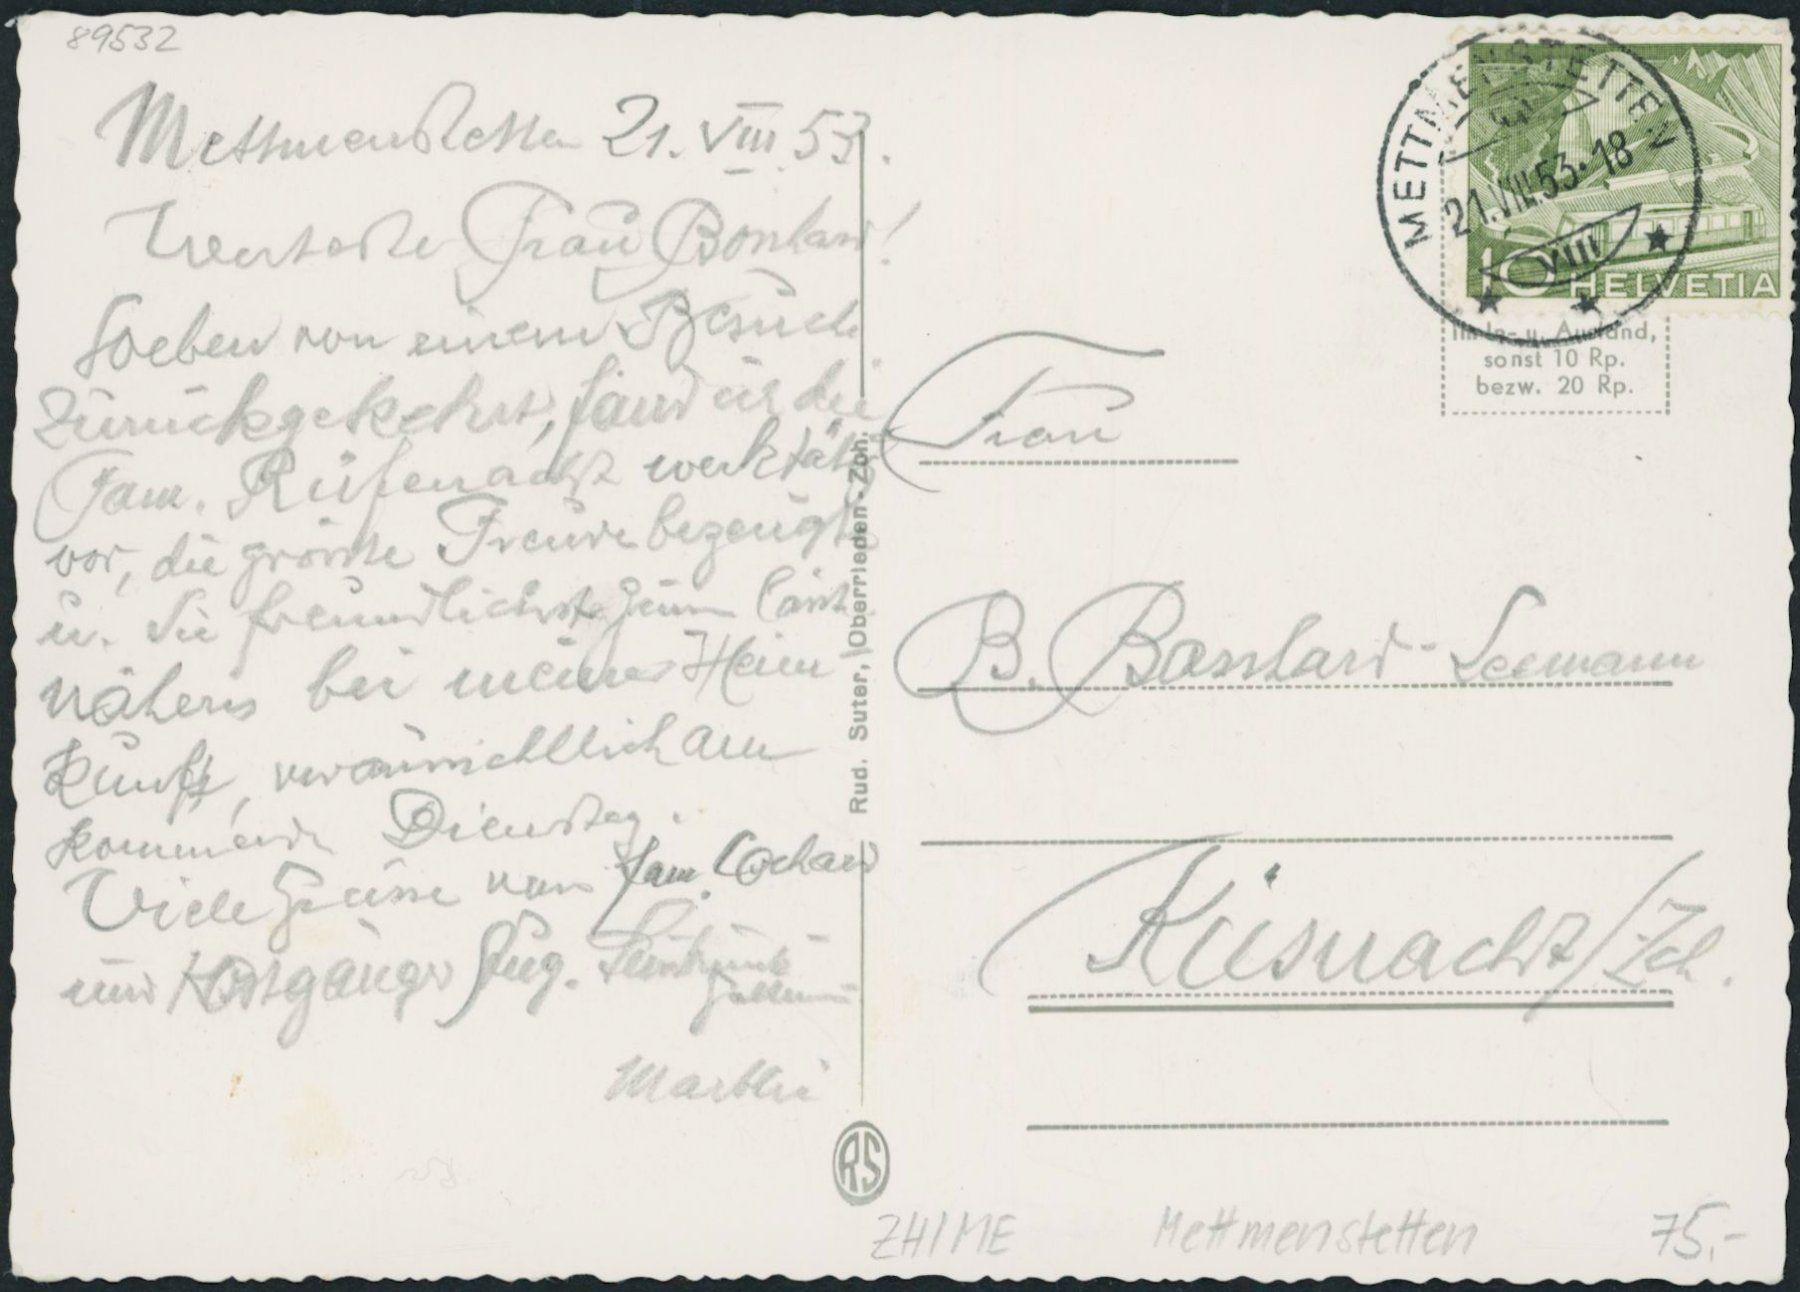 89532
Mettmenstetten 21. VIII 53.
Werteste Frau Bosshard!
Soeben von einem Besuch
zurückgekehrt, fand ich die
Fam. Rüfenacht werktätig
vor, die grösste Freude bezeugt
u. Sie freundlichst
Näheres bei meiner Heim
kunft, voraussichtlich am
kommend. Dienstag.
Viele Grüsse von Fam.
und Aug.
METTMENSTETTEN
21.VIII.53.-18
VIII
10 HELVETIA
Im In- u. Ausland,
sonst 10 Rp.
bezw. 20 Rp.
Frau
B. Bosshard-Leemann
Küsnacht/Zch.
Rud. Suter, Oberrieden-Zch.
RS
ZH/ME
Mettmenstetten
75,-